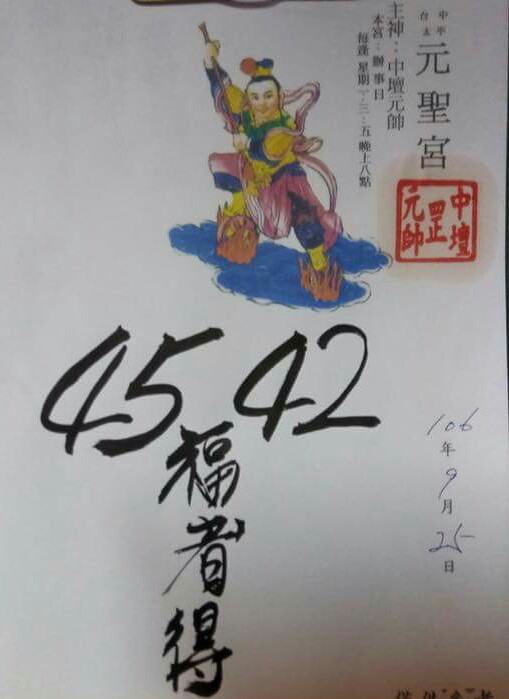 台中
太平
元聖宮
主神：中壇元帥
本宮：辦事日
每逢星期一．三．五晚上八點
中壇
罡
元帥
45 42
福者得
106年9月25日
僅供參考